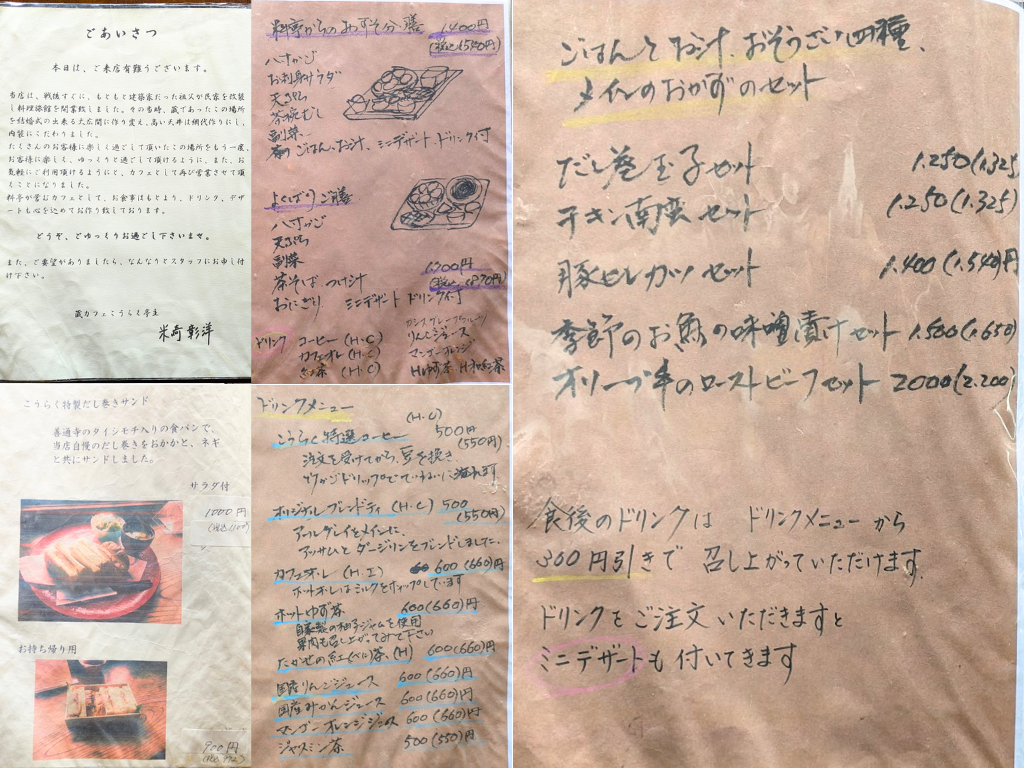 ごあいさつ
本日は、ご来店有難うございます。
当店は、戦後すぐに、もともと建築家だった祖父が民家を改装
し料理旅館を開業致しました。その当時、蔵であったこの場所
を結婚式の出来る大広間に作り変え、高い天井は網代作りにし、
内装にこだわりました。
たくさんのお客様に楽しく過して頂いたこの場所をもう一度、
お客様に楽しく、ゆっくりと過して頂けるように、また、お
気軽にご利用頂けるようにと、カフェとして再び営業させて頂
くことになりました。
料亭が営むカフェとして、お食事はもとより、ドリンク、デザ
ートも心を込めてお作り致しております。
どうぞ、ごゆっくりお過し下さいませ。
また、ご要望がありましたら、なんなりとスタッフにお申し付
け下さい。
蔵カフェこうらく亭主
米崎 彰洋
料亭からのおすそ分け膳 1,400円
(税込1,540円)
八寸かご
お刺身サラダ
天ぷら
茶碗むし
副菜
ごはん、お汁、ミニデザート、ドリンク付
よくばりご膳
八寸かご
天ぷら
副菜
茶そば つけ汁
おにぎり ミニデザート ドリンク付
1,700円
(税込1,870円)
ドリンク コーヒー (H・C)
カフェオレ (H・C)
紅茶 (H・C)
りんごジュース
マンゴーオレンジ
Hゆず茶 H和紅茶
こうらく特製だし巻きサンド
善通寺のダイシモチ入りの食パンで、
当店自慢のだし巻きをおかかと、ネギ
と共にサンドしました。
サラダ付
1000円
(税込1100)
お持ち帰り用
900円
ドリンクメニュー
(H・C)
こうらく特選コーヒー 500円
(550円)
注文を受けてから、豆を挽き
ていねいに淹れます
オリジナルブレンドティ (H・C) 500
(550円)
アールグレイをメインに、
アッサムとダージリンをブレンドしました。
カフェオーレ (H・I) 600(660)円
ホットオーレはミルクをホップしています
ホットゆず茶 600(660)円
自家製の柚子ジャムを使用
果肉も召し上がってみて下さい
たかせの紅(べに)茶 (H) 600(660)円
国産りんごジュース 600(660)円
国産みかんジュース 600(660)円
マンゴーオレンジジュース 600(660)円
ジャスミン茶 500(550)円
ごはんと お汁、おそうざい四種、
メインのおかずのセット
だし巻玉子セット 1.250(1.325
チキン南蛮セット 1.250(1.325)
豚ヒレカツセット 1.400(1.540)円
季節のお魚の味噌漬けセット 1.500(1.650)
オリーブ牛のローストビーフセット 2000(2.200)
食後のドリンクは ドリンクメニューから
300円引きで 召し上がっていただけます。
ドリンクをご注文いただきますと
ミニデザートも付いてきます